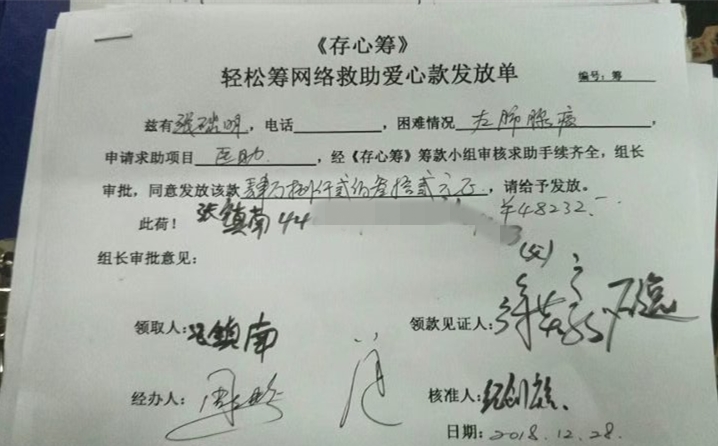 《存心筹》
轻松筹网络救助爱心款发放单
编号:筹
兹有张瑞明,电话,困难情况左肺腺癌,
申请求助项目医助,经《存心筹》筹款小组审核求助手续齐全,组长
审批,同意发放该款肆万捌仟贰佰叁拾贰元正,请给予发放。
此荷! 张镇南44 3 ¥48232.-
(父)
组长审批意见:
领取人:张镇南 领款见证人:
经办人: 核准人:纪创雄
日期:2018.12.28.